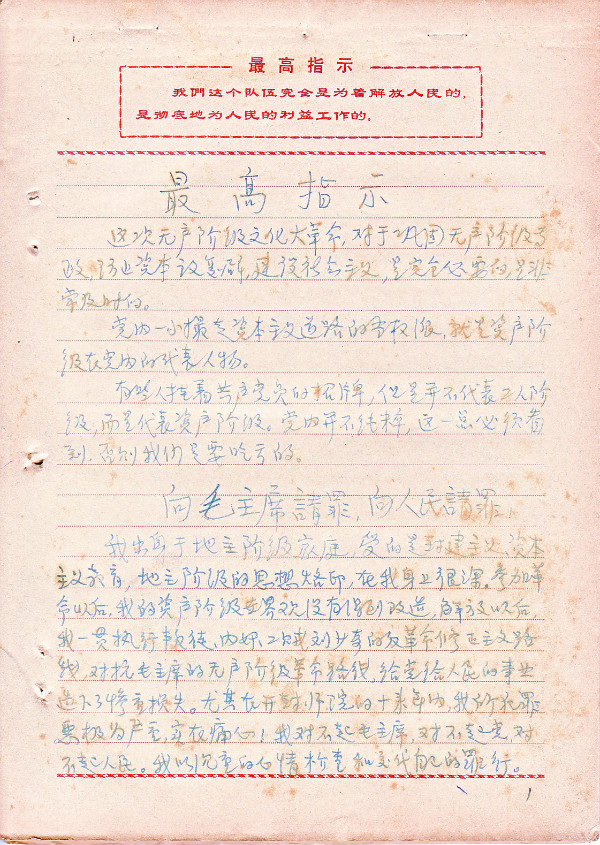 最高指示
我們这个队伍完全是为着解放人民的，
是彻底地为人民的利益工作的。
最高指示
这次无产阶级文化大革命，对于巩固无产阶级专
政，防止资本主义复辟，建设社会主义，是完全必要的，是非
常及时的。
党内一小撮走资本主义道路的当权派，就是资产阶
级在党内的代表人物。
有些人挂着共产党员的招牌，但是并不代表工人阶
级，而是代表资产阶级。党内并不纯粹，这一点必须看
到，否则我们是要吃亏的。
向毛主席請罪，向人民請罪！
我出身于地主阶级家庭，受的是封建主义，资本
主义教育，地主阶级的思想烙印，在我身上很深。参加革
命以后，我的资产阶级世界观没有得到改造，解放以后，
我一贯执行叛徒、内奸、工贼刘少奇的反革命修正主义路
线，对抗毛主席的无产阶级革命路线，给党给人民的事业
造下了惨重损失。尤其在开封师院的十来年内，我所犯罪
恶极为严重，实在痛心！我对不起毛主席，对不起党，对
不起人民。我以沉重的心情检查和交代自己的罪行。
1